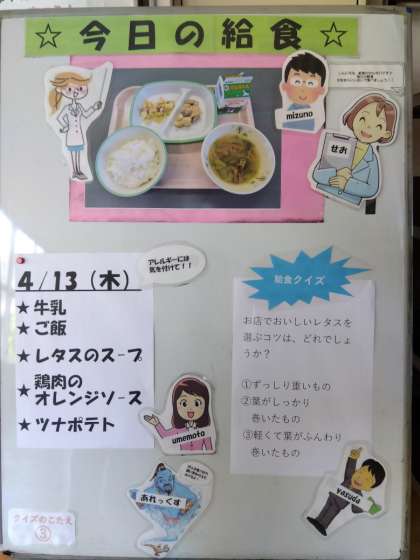 ☆ 今日の給食 ☆
mizuno
せお
アレルギーには
気を付けて！！
4/13（木）
★牛乳
★ご飯
★レタスのスープ
★鶏肉の
オレンジソース
★ツナポテト
給食クイズ
お店でおいしいレタスを
選ぶコツは、どれでしょ
うか？
①ずっしり重いもの
②葉がしっかり
巻いたもの
③軽くて葉がふんわり
巻いたもの
umemoto
あれっくす
yasuda
クイズのこたえ
③